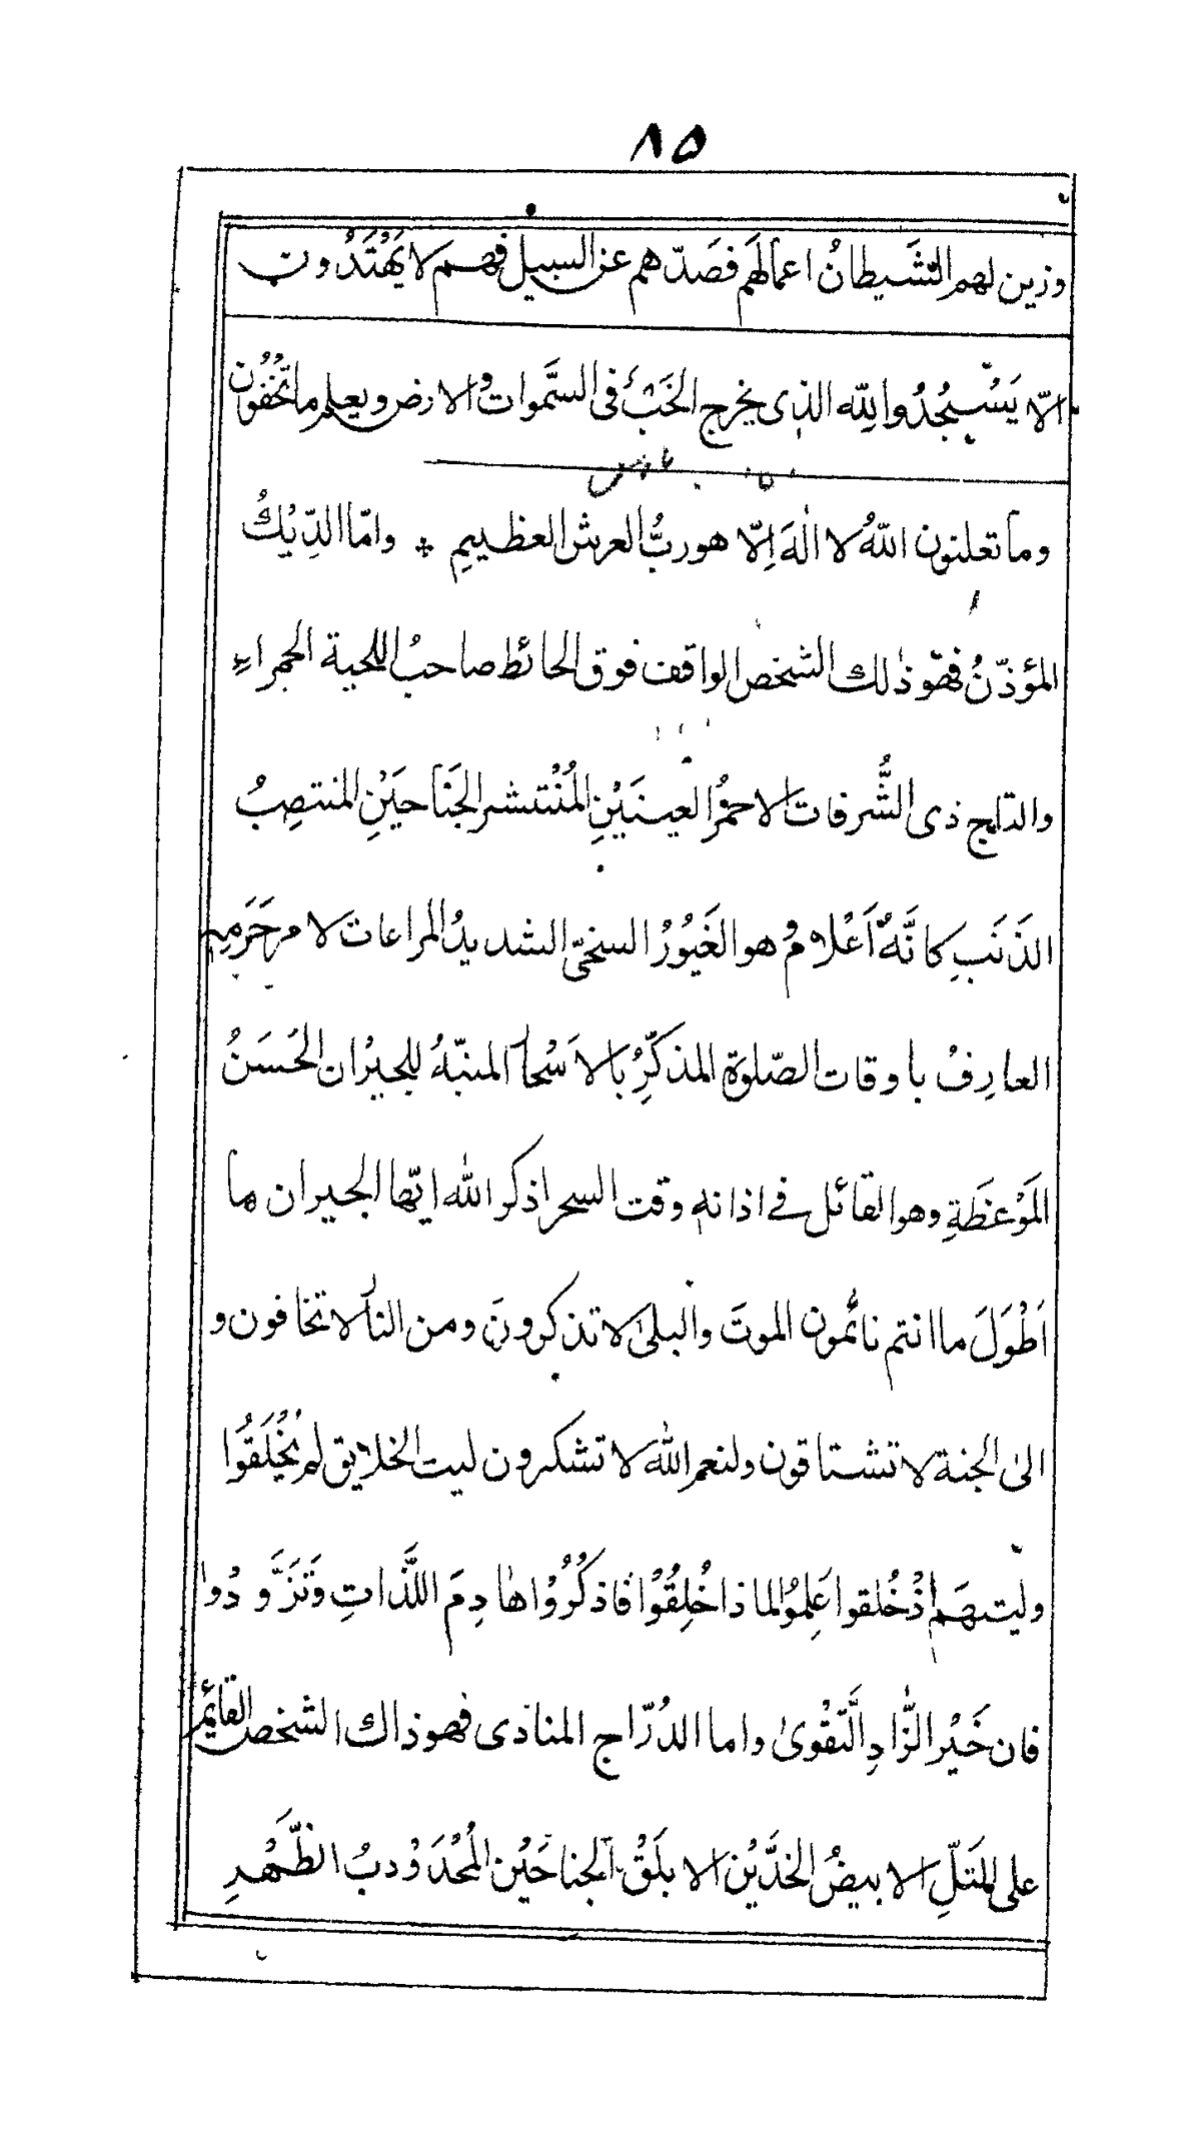 ٨٥
وزين لهم الشَيطانُ اعمالَهم فصَدّهم عن السبيل فهم لا يَهْتَدُون
الّا يَسْجُدُوا لِلّٰه الذى يخرج الخَبْءَ فى السَّموات والارض ويعلم ما تُخْفُون
وما تعلنون اللّٰهُ لا الٰهَ اِلّا هو ربُّ العرش العظيمِ * وامّا الدِّيْكُ
المؤذّنُ فهو ذٰلك الشخص الواقف فوق الحائط صاحبُ اللحية الحمراء
والتاج ذى الشُّرفات الاحمرُ العينَيْنِ المُنْتشر الجَنَاحَيْنِ المنتصِبُ
الذَنَبِ كانَّهُ اَعْلامٌ وهو الغَيُوْرُ السخىّ الشديدُ المراعات لامر حَرَمِهٖ
العارِفُ باوقات الصّلوة المذكِّرُ بالاَسْحار المنبّهُ للجيْران الحَسَنُ
المَوْعِظَةِ وهو القائل فے اذانه وقت السحر اذكروا اللّٰه ايّها الجيران ما
اَطْوَلَ ما انتم نائمُون الموتَ والبلىٰ لا تذكرونَ ومن النار لا تخافون و
الىٰ الجنة لا تشتاقون ولنعم اللّٰه لا تشكرون ليت الخلايق لم يُخْلَقُوا
وليتهَم اِذْ خُلقوا عَلِمُوا لماذا خُلِقُوْا فاذكُرُوْا هادِمَ اللَّذاتِ وَتَزَوَّدُوا
فان خَيْر الزَّادِ التَّقْوىٰ واما الدُرّاج المنادى فهو ذاك الشخص القائم
على التَلِّ الابيضُ الخدَّيْن الابلَقُ الجناحَيْن المُحْدَوْدبُ الظَّهْرِ